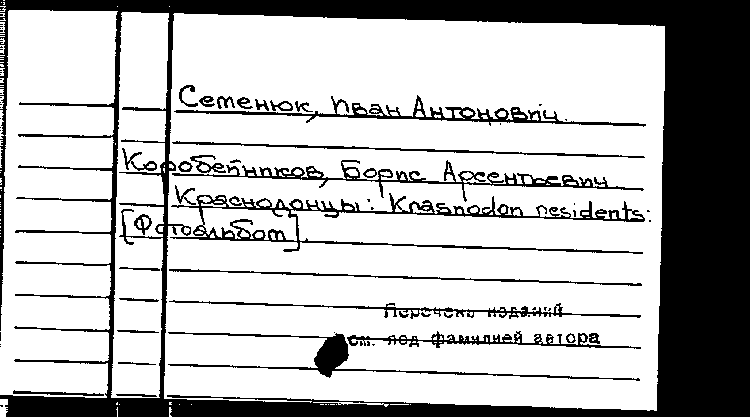 Семенюк, Иван Антонович.
Коробейников, Борис Арсентьевич
Краснодонцы: Krasnodon residents:
[Фотоальбом].
Перечень изданий
см. под фамилией автора